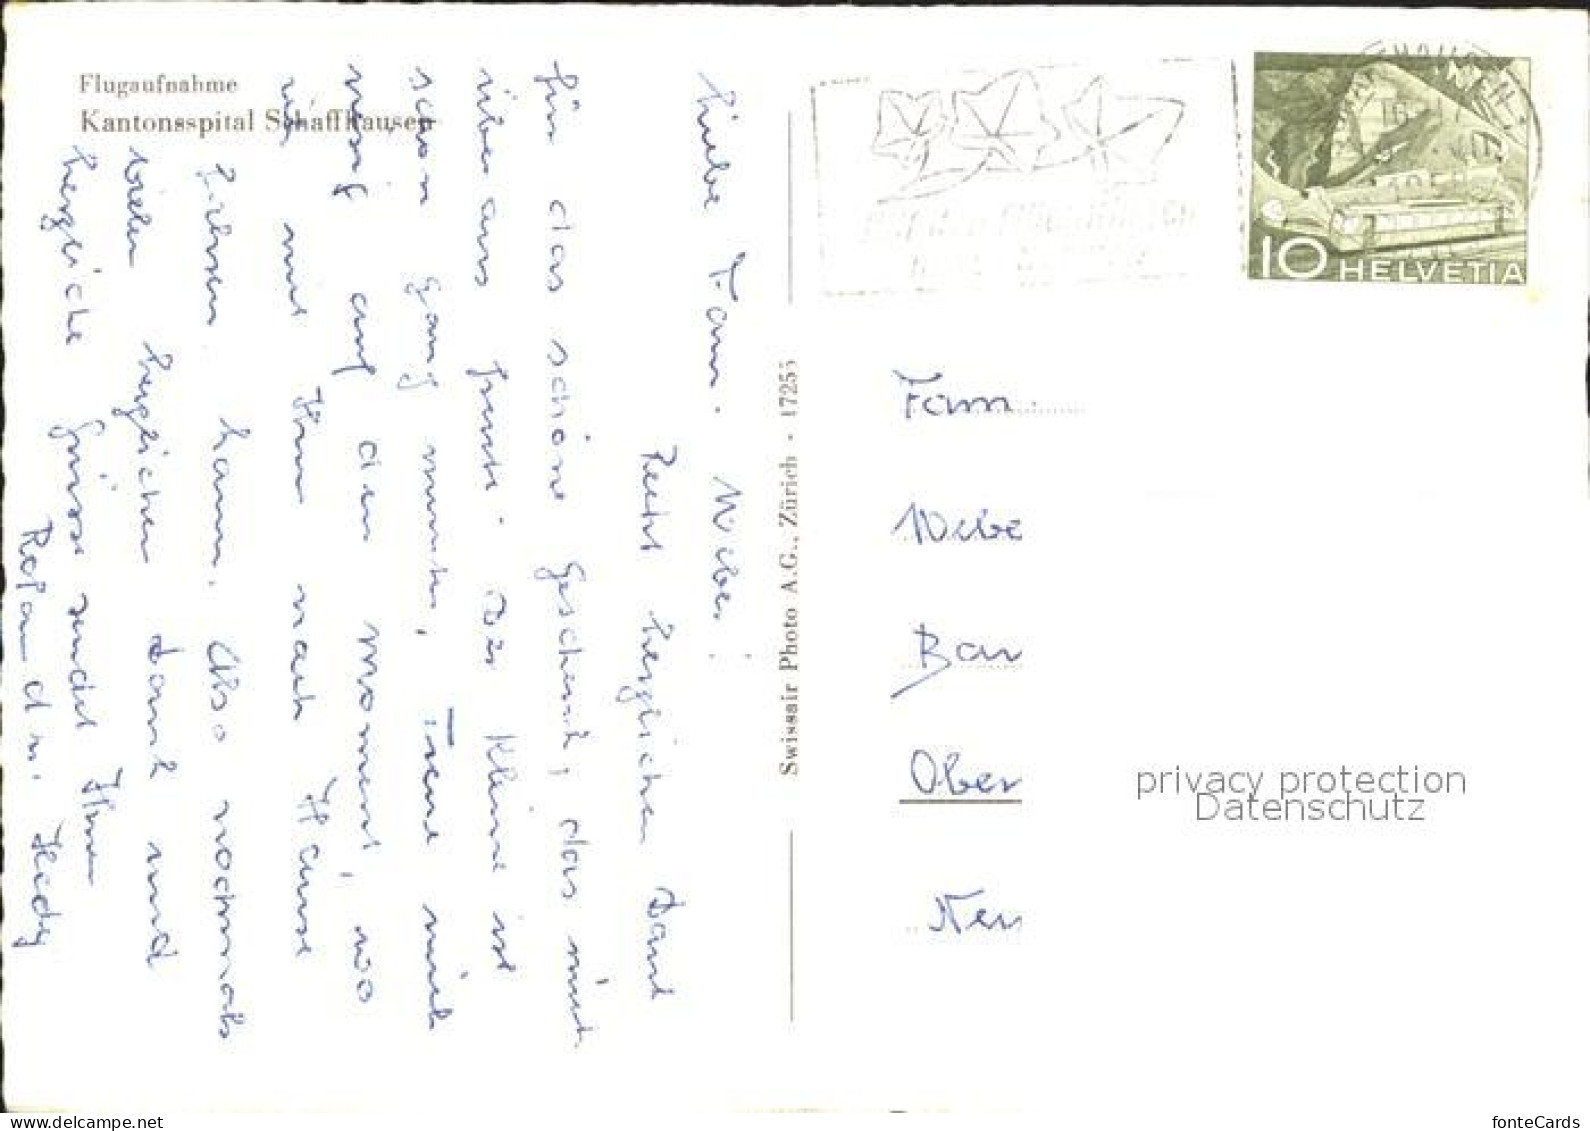 Flugaufnahme
Kantonsspital Schaffhausen
Liebe Fam. Weber!
Recht herzlichen Dank
für das schöne Geschenk, das mich
überaus freute. Der Kleine ist
schon ganz munter, Freue mich
riesig auf den Moment, wo
ich mit Ihm nach Hause
fahren kann. Also nochmals
vielen herzlichen Dank und
herzliche Grüsse sendet Ihnen
Roland u. Hedy
Swissair Photo A.G., Zürich - 17255
10 HELVETIA
Fam
Webe
Bau
Ober
Neu
privacy protection
Datenschutz
fonteCards